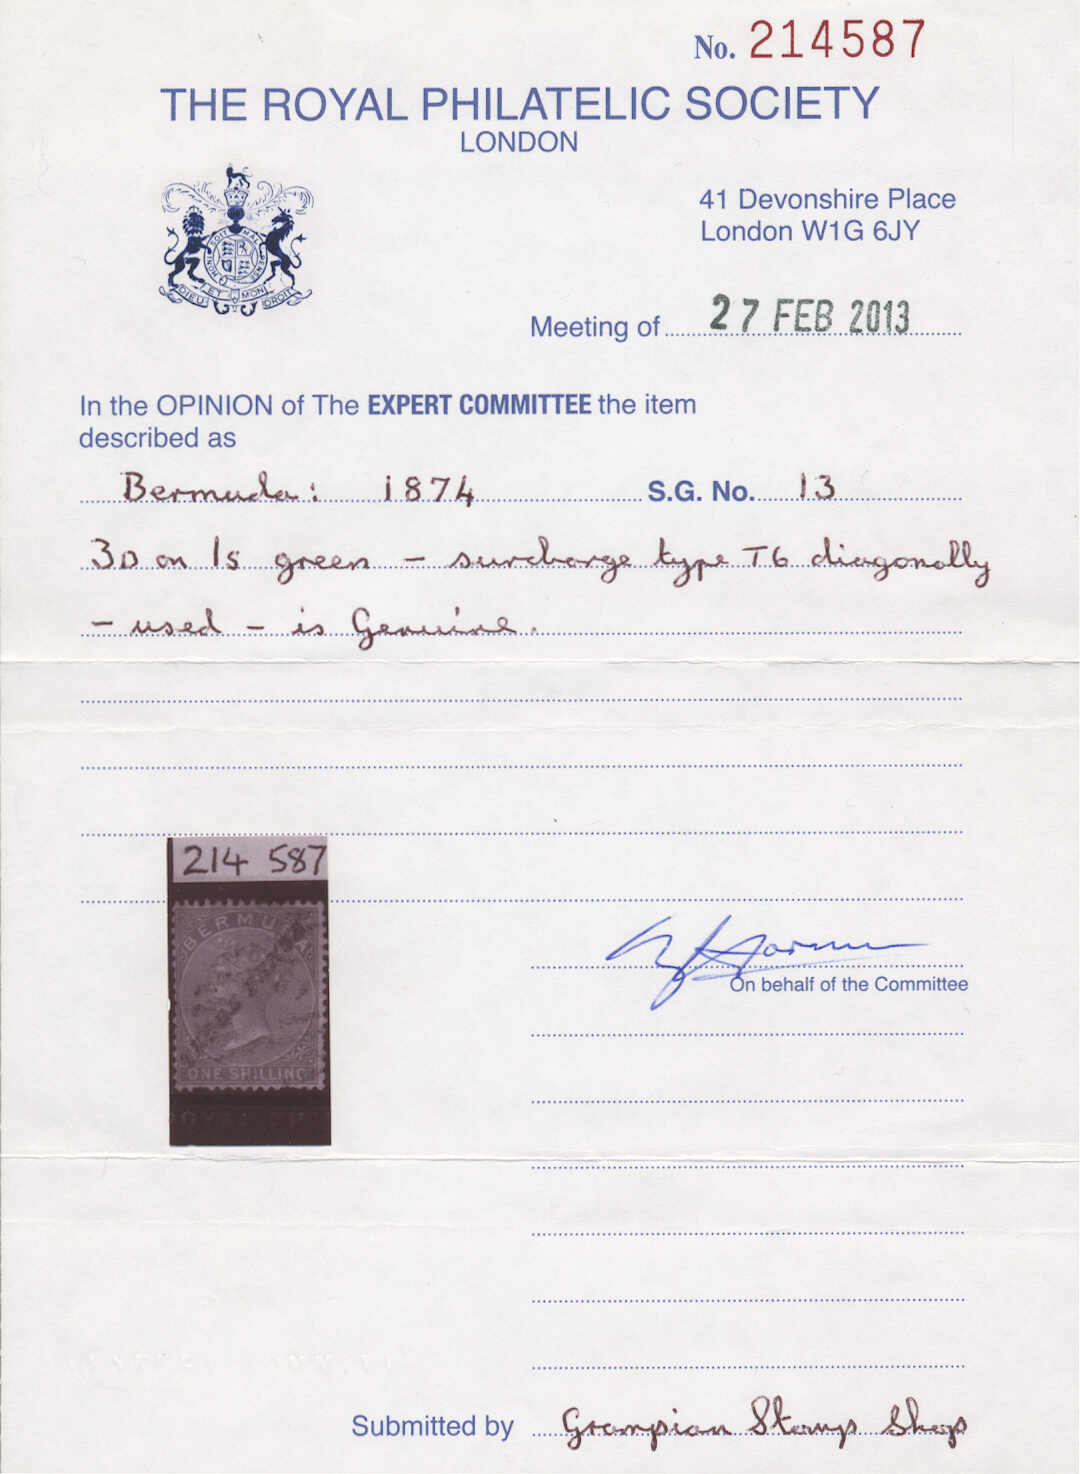 No. 214587
THE ROYAL PHILATELIC SOCIETY
LONDON
41 Devonshire Place
London W1G 6JY
DIEU ET MON DROIT
Meeting of 27 FEB 2013
In the OPINION of The EXPERT COMMITTEE the item
described as
Bermuda: 1874 S.G. No. 13
3D on 1s green – surcharge type T6 diagonally
– used – is Genuine.
214 587
BERMUDA
ONE SHILLING
On behalf of the Committee
Submitted by Grampian Stamp Shop